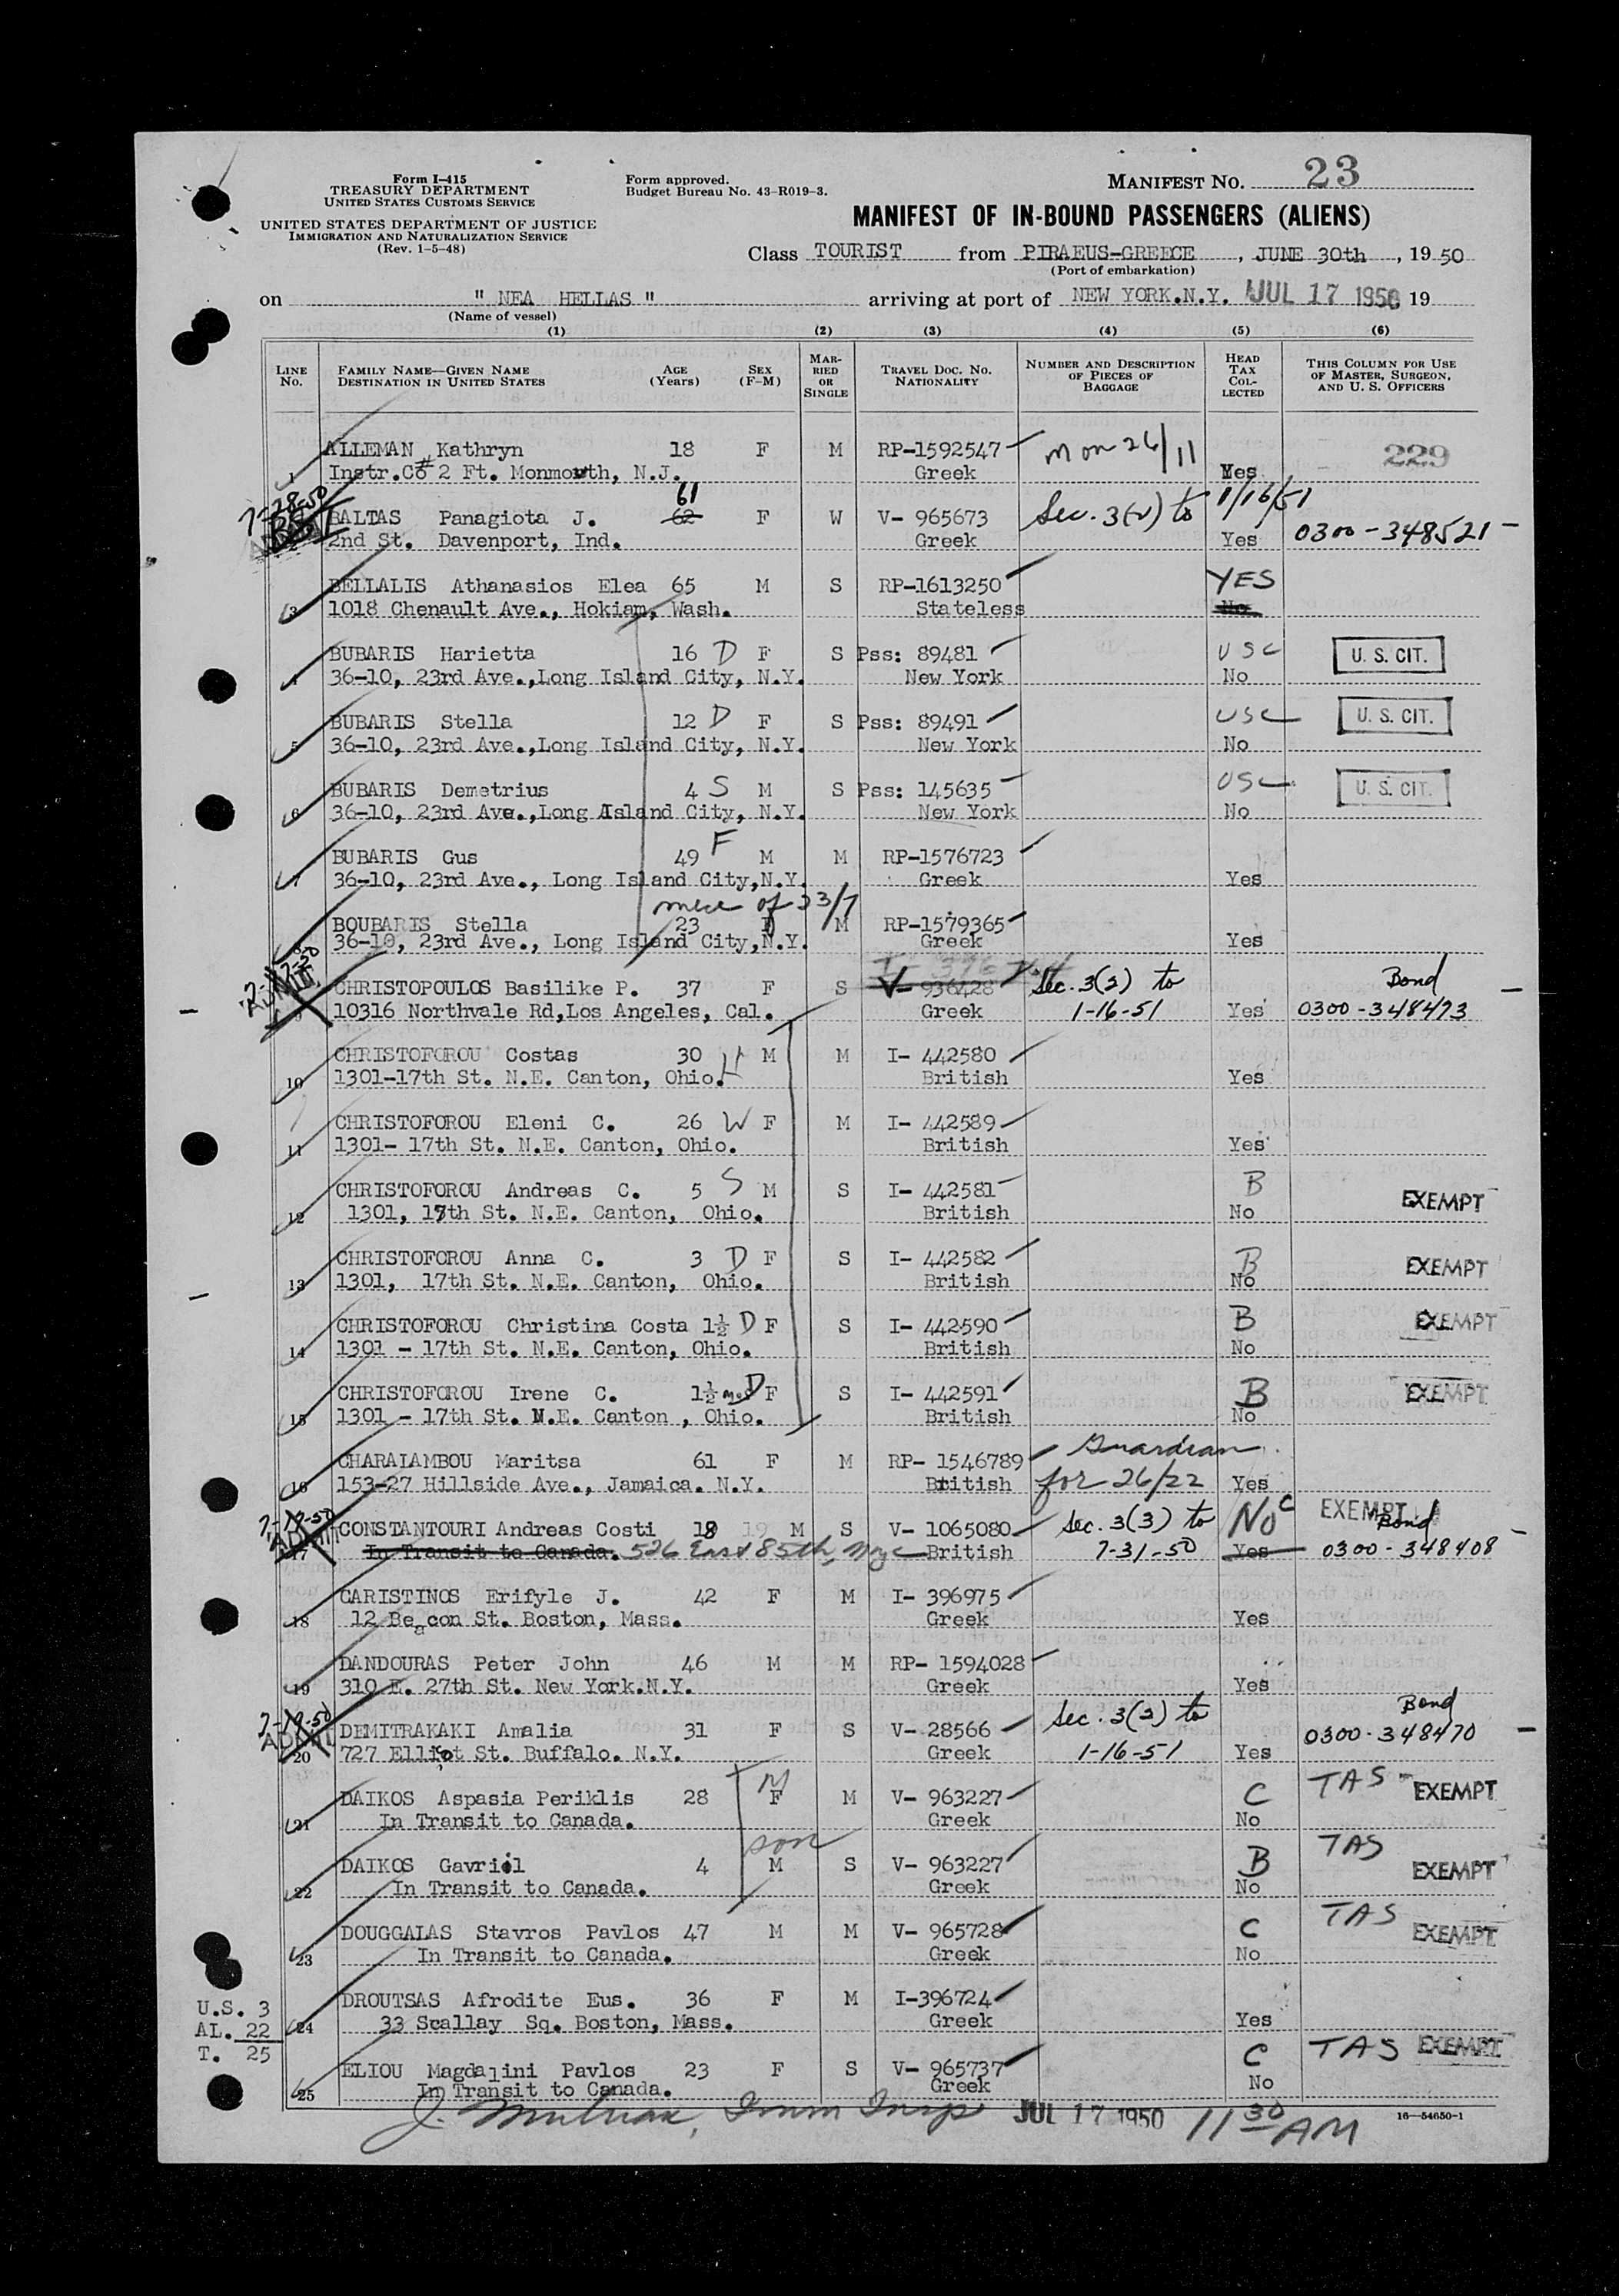 Form I-415
TREASURY DEPARTMENT
UNITED STATES CUSTOMS SERVICE
UNITED STATES DEPARTMENT OF JUSTICE
IMMIGRATION AND NATURALIZATION SERVICE
(Rev. 1-5-48)
Form approved.
Budget Bureau No. 43-R019-3.
MANIFEST NO. 23
MANIFEST OF IN-BOUND PASSENGERS (ALIENS)
Class TOURIST from PIRAEUS-GREECE, JUNE 30th, 19 50
(Port of embarkation)
on " NEA HELLAS " arriving at port of NEW YORK.N.Y. JUL 17 1950 19
(Name of vessel)
(1) (2) (3) (4) (5) (6)
LINE No. FAMILY NAME—GIVEN NAME DESTINATION IN UNITED STATES AGE (Years) SEX (F-M) MARRIED OR SINGLE TRAVEL DOC. NO. NATIONALITY NUMBER AND DESCRIPTION OF PIECES OF BAGGAGE HEAD TAX COLLECTED THIS COLUMN FOR USE OF MASTER, SURGEON, AND U. S. OFFICERS
ALLEMAN Kathryn 18 F M RP-1592547 M on 26/11 229
1 Instr.Co # 2 Ft. Monmouth, N.J. Greek Yes
7-28-50 61 1/16/51
BALTAS Panagiota J. 62 F W V- 965673 Sec. 3(2) to
2 2nd St. Davenport, Ind. Greek Yes 0300-348521
BELLALIS Athanasios Elea 65 M S RP-1613250 YES
3 1018 Chenault Ave., Hokiam, Wash. Stateless No
BUBARIS Harietta 16 D F S Pss: 89481 USC U. S. CIT.
4 36-10, 23rd Ave.,Long Island City, N.Y. New York No
BUBARIS Stella 12 D F S Pss: 89491 USC U. S. CIT.
5 36-10, 23rd Ave.,Long Island City, N.Y. New York No
BUBARIS Demetrius 4 S M S Pss: 145635 USC U. S. CIT.
6 36-10, 23rd Ave.,Long Island City, N.Y. New York No
BUBARIS Gus 49 F M M RP-1576723
7 36-10, 23rd Ave., Long Island City,N.Y. Greek Yes
niece of 23/7
BOUBARIS Stella 23 F M RP-1579365
8 36-10, 23rd Ave., Long Island City,N.Y. Greek Yes
CHRISTOPOULOS Basilike P. 37 F S V- 936428 Sec. 3(2) to Bond
9 10316 Northvale Rd,Los Angeles, Cal. Greek 1-16-51 Yes 0300-348473
CHRISTOFOROU Costas 30 H M M I- 442580
10 1301-17th St. N.E. Canton, Ohio. British Yes
CHRISTOFOROU Eleni C. 26 W F M I- 442589
11 1301- 17th St. N.E. Canton, Ohio. British Yes
CHRISTOFOROU Andreas C. 5 S M S I- 442581 B EXEMPT
12 1301, 17th St. N.E. Canton, Ohio. British No
CHRISTOFOROU Anna C. 3 D F S I- 442582 B EXEMPT
13 1301, 17th St. N.E. Canton, Ohio. British No
CHRISTOFOROU Christina Costa 1½ D F S I- 442590 B EXEMPT
14 1301 - 17th St. N.E. Canton, Ohio. British No
CHRISTOFOROU Irene C. 1½ mos D F S I- 442591 B EXEMPT
15 1301 - 17th St. N.E. Canton , Ohio. British No
CHARALAMBOU Maritsa 61 F M RP- 1546789 Guardian
16 153-27 Hillside Ave., Jamaica. N.Y. British for 26/22 Yes
7-19-50 ADMIT
CONSTANTOURI Andreas Costi 18 19 M S V- 1065080 Sec. 3(3) to No C EXEMPT Bond
17 In Transit to Canada. 526 East 85th, Nyc British 7-31-50 Yes 0300-348408
CARISTINOS Erifyle J. 42 F M I- 396975
18 12 Beacon St. Boston, Mass. Greek Yes
DANDOURAS Peter John 46 M M RP- 1594028
19 310 E. 27th St. New York.N.Y. Greek Yes
7-19-50 ADMIT
DEMITRAKAKI Amalia 31 F S V- 28566 Sec. 3(2) to Bond
20 727 Elliot St. Buffalo. N.Y. Greek 1-16-51 Yes 0300-348470
DAIKOS Aspasia Periklis 28 M F M V- 963227 C TAS EXEMPT
21 In Transit to Canada. Greek No
son
DAIKOS Gavriil 4 M S V- 963227 B TAS EXEMPT
22 In Transit to Canada. Greek No
DOUGGALAS Stavros Pavlos 47 M M V- 965728 C TAS EXEMPT
23 In Transit to Canada. Greek No
DROUTSAS Afrodite Eus. 36 F M I-396724
24 33 Scallay Sq. Boston, Mass. Greek Yes
ELIOU Magdalini Pavlos 23 F S V- 965737 C TAS EXEMPT
25 In Transit to Canada. Greek No
U.S. 3
AL. 22
T. 25
J. Imm Insp JUL 17 1950 11 30 AM
16—54650-1